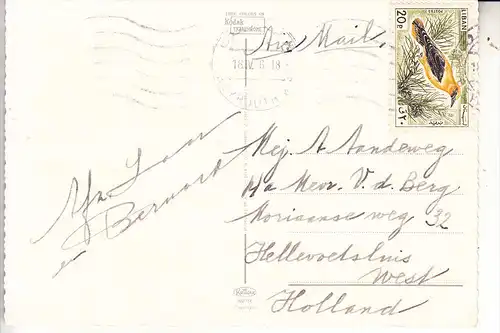 Kodak
18. IV. 6 18
LIBAN
20P
Air Mail
Afz. Loon
en Bernard
Mej. A Aandeweg
p/a Mevr. V. d. Berg
Moriaanse weg 32
Hellevoetsluis
West
Holland